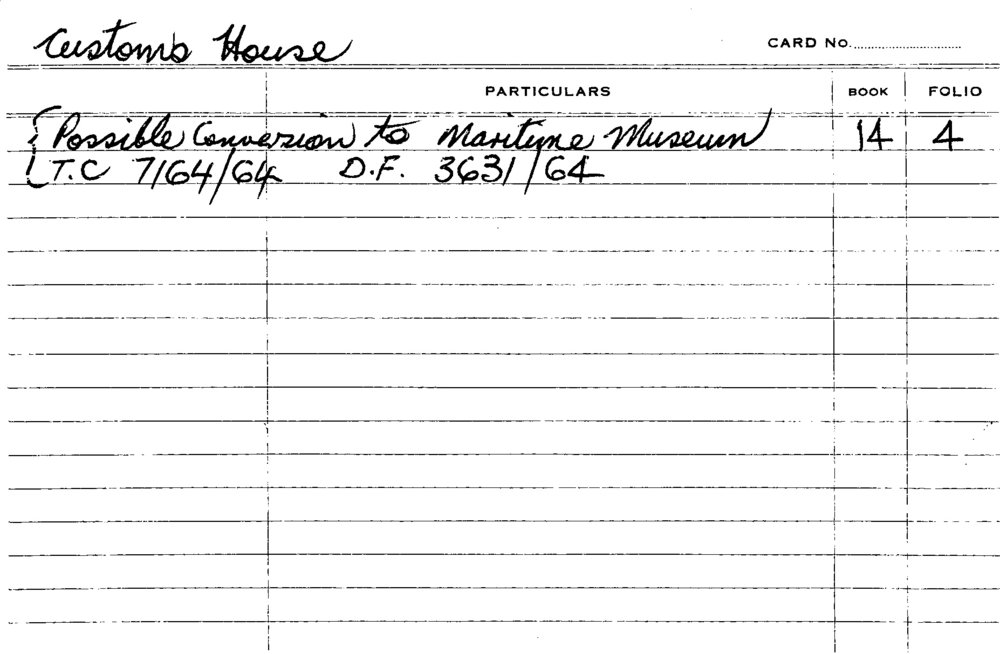 Customs House CARD No.
PARTICULARS BOOK FOLIO
Possible Conversion to Maritime Museum 14 4
T.C 7164/64 D.F. 3631/64